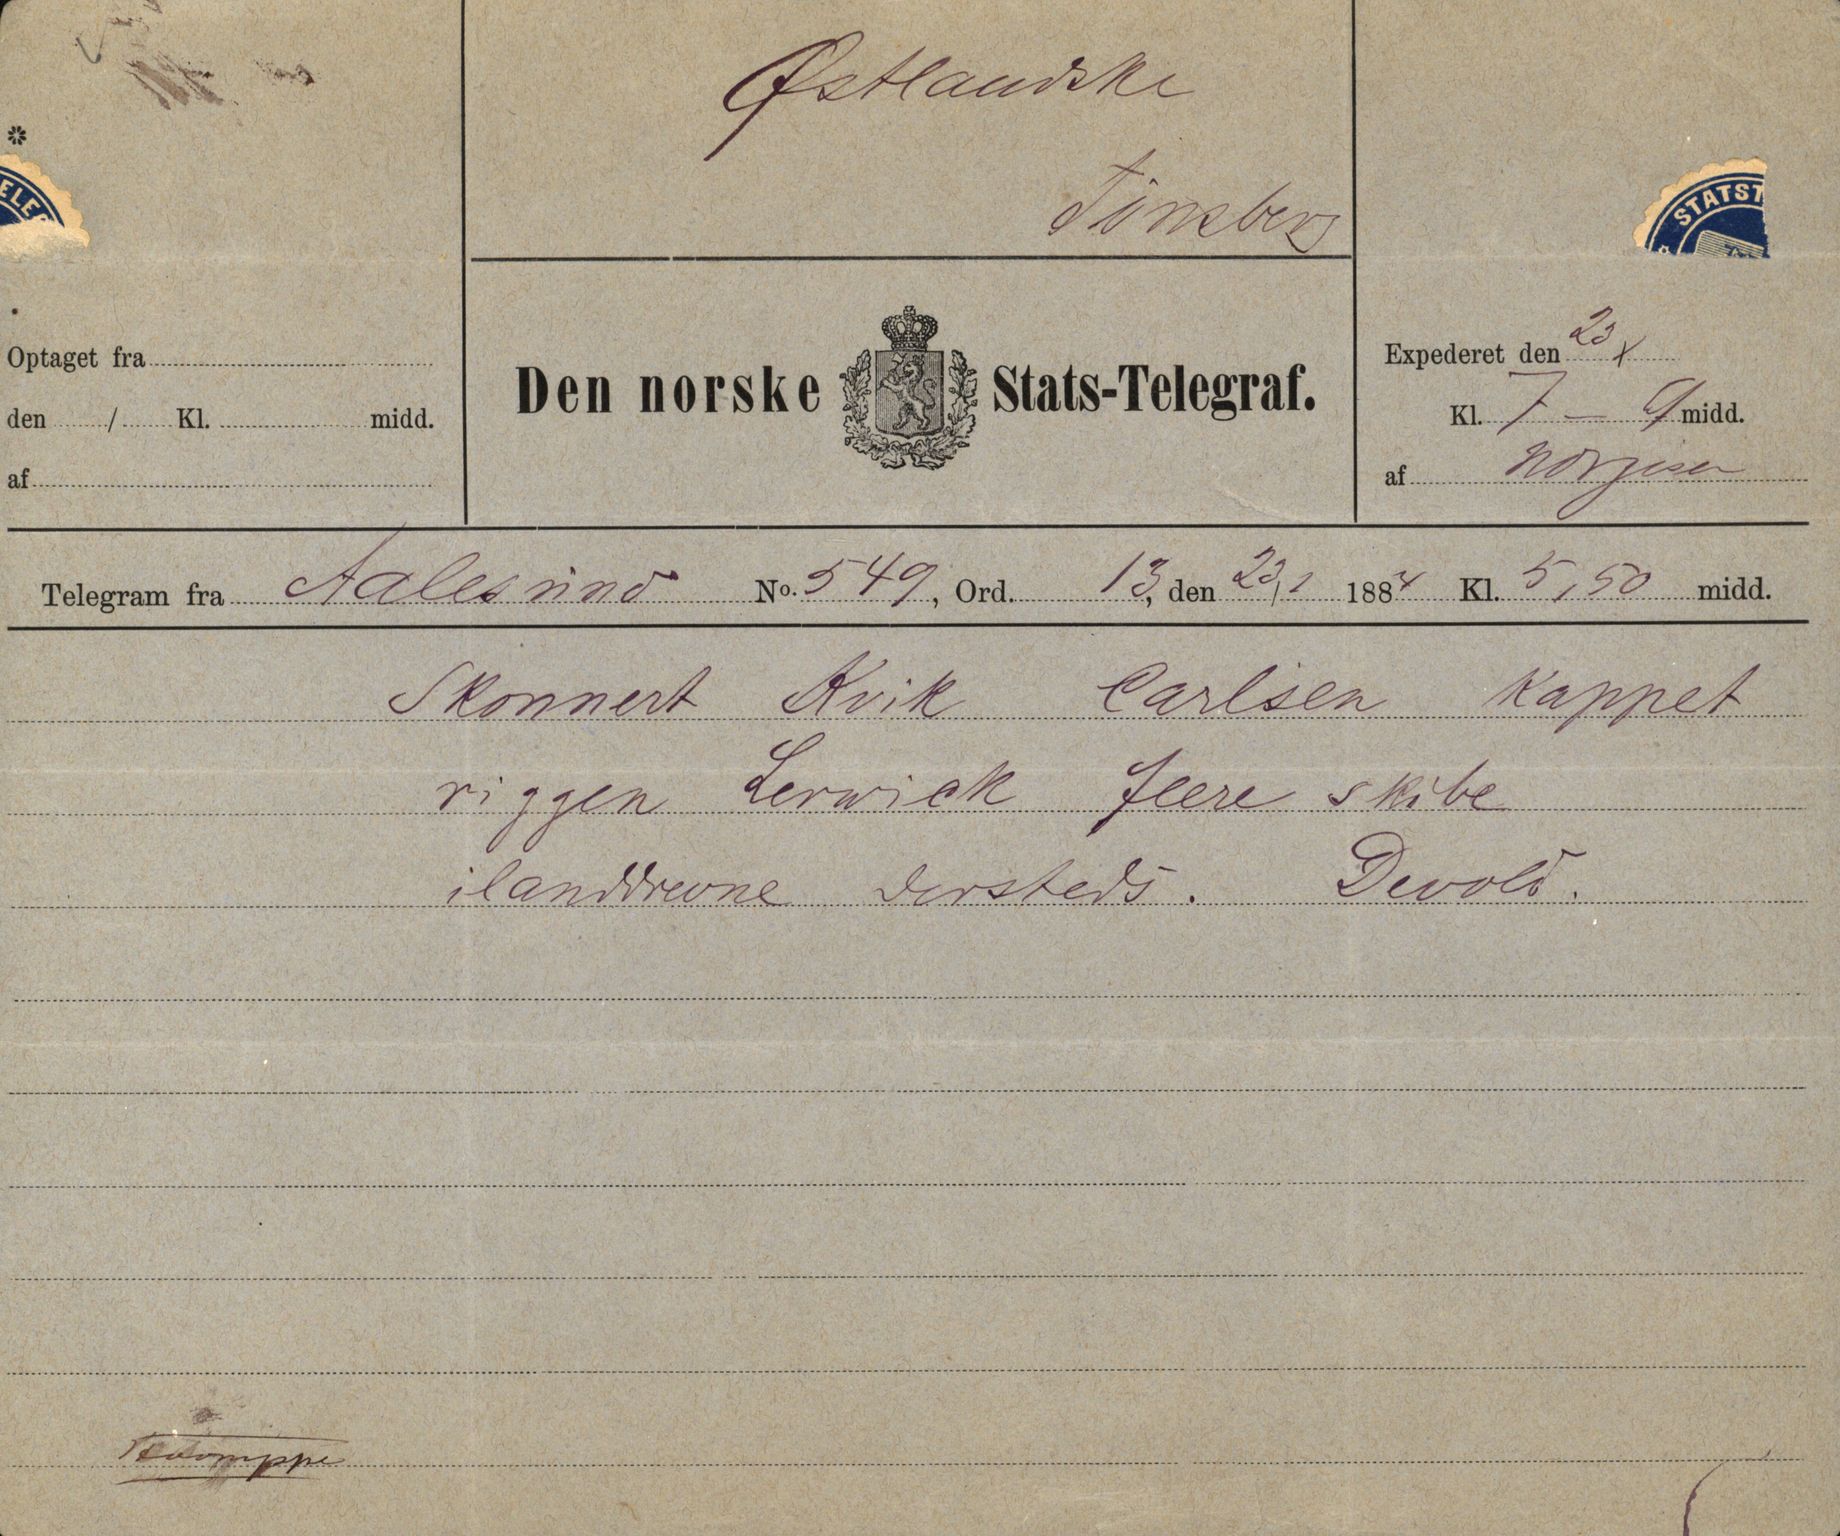 Østlandske
Tönsberg
*
ELEG
STATST
Optaget fra
den / Kl. midd.
af
Den norske Stats-Telegraf.
Expederet den 23/X
Kl. 7 — 9 midd.
af
Telegram fra Aalesund No. 549, Ord. 13, den 23/1 1884 Kl. 5,50 midd.
Skonnert Kvik Carlsen kappet
riggen Lerwick fleere skibe
ilanddrevne dersteds. Devold.